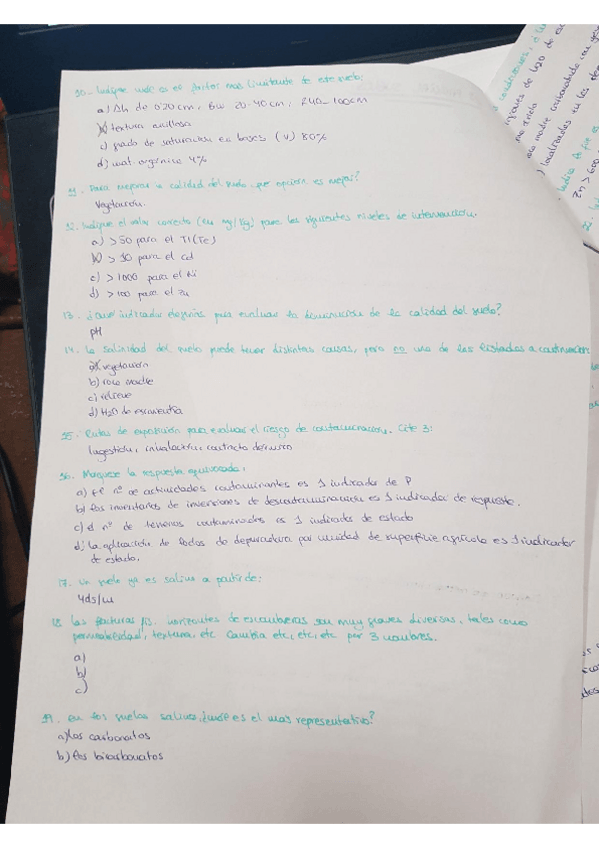 10.- Indique cuál es el factor más limitante de este suelo:
a) Ah de 0-20cm, Bw 20-40cm, R40-100cm
b) textura arcillosa
c) grado de saturación en bases (V) 80%
d) mat. orgánica 4%
11. Para mejorar la calidad del suelo, que opción es mejor?
Vegetación.
12. Indique el valor correcto (en mg/kg) para los siguientes niveles de intervención.
a) >50 para el Tl (Te)
b) >30 para el Cd
c) >1000 para el Ni
d) >100 para el Zn
13. ¿Qué indicador elegirías para evaluar la disminución de la calidad del suelo?
pH
14. La salinidad del suelo puede tener distintas causas, pero no una de las listadas a continuación
a) vegetación
b) roca madre
c) relieve
d) H2O de escorrentía
15. Rutas de exposición para evaluar el riesgo de contaminación. Cite 3:
Ingestión, inhalación, contacto dérmico
16. Marque la respuesta equivocada:
a) el nº de actividades contaminantes es 1 indicador de P
b) los inventarios de inversiones de descontaminación es 1 indicador de respuesta.
c) el nº de terrenos contaminados es 1 indicador de estado
d) la aplicación de lodos de depuradora por unidad de superficie agrícola es 1 indicador
de estado.
17. Un suelo ya es salino a partir de:
4ds/m
18. Las facturas horizontes de escombreras son muy graves diversas, tales como
permeabilidad, textura, etc. Cambia etc, etc, etc por 3 nombres.
a)
b)
c)
19. en los suelos salinos, ¿cuál es el más representativo?
a) los carbonatos
b) los bicarbonatos